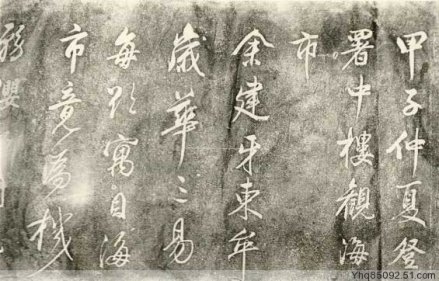 甲子仲夏登
署中樓觀海
市
余建牙東牟
歲華三易
每欲寓目海
市竟為機
務嬰
Yhq85092.51.com